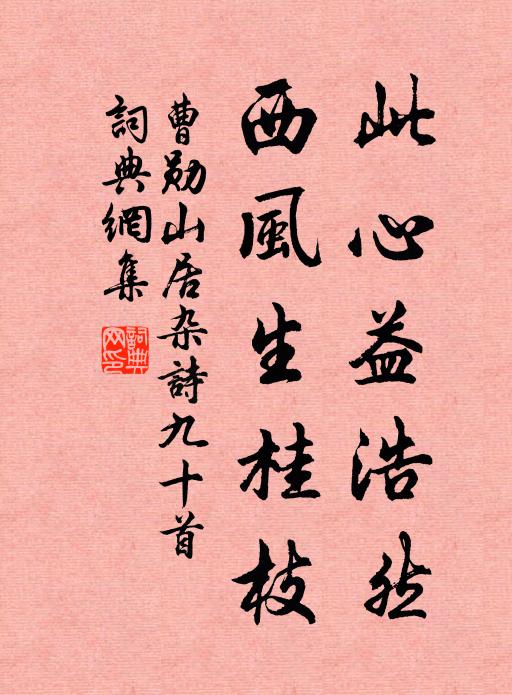 此心益浩然
西風生桂枝
曹勛山居杂詩九十首
詞典網集
詞典網印